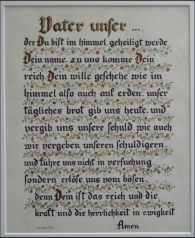 Vater unser ...
der Du bist im himmel. geheiligt werde
Dein name. zu uns komme Dein
reich. Dein wille geschehe wie im
himmel also auch auf erden. unser
tägliches brot gib uns heute. und
vergib uns unsere schuld wie auch
wir vergeben unseren schuldigern.
und führe uns nicht in versuchung
sondern erlöse uns vom bösen.
denn Dein ist das reich und die
kraft und die herrlichkeit in ewigkeit
Amen